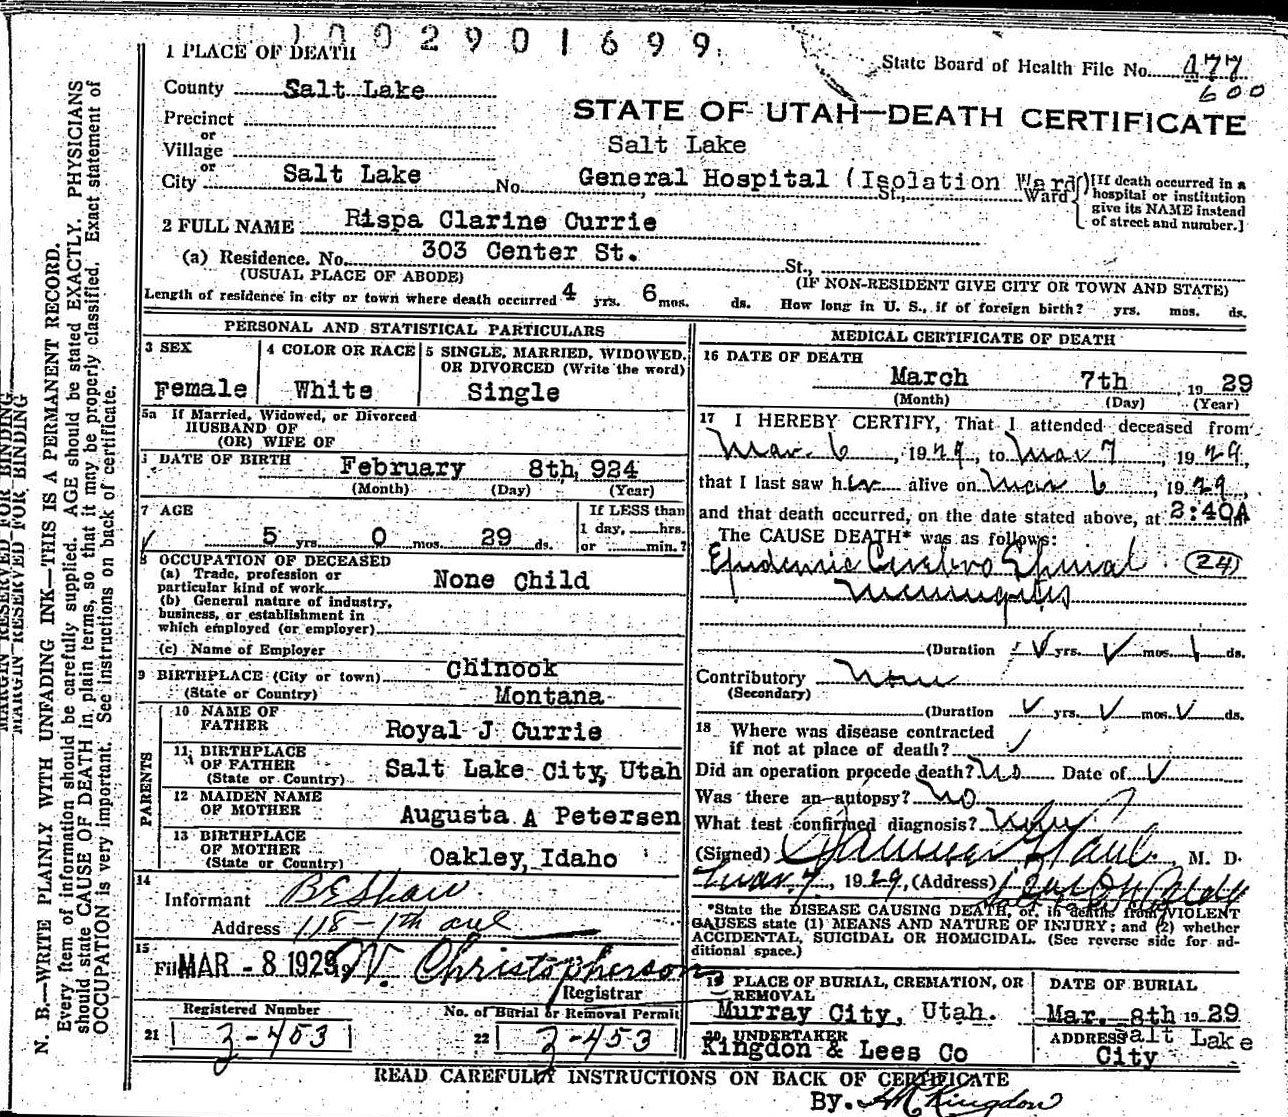 0 0 2 9 0 1 6 9 9
1 PLACE OF DEATH
State Board of Health File No. 477
600
County Salt Lake
STATE OF UTAH—DEATH CERTIFICATE
Precinct
or
Village
Salt Lake
or
City Salt Lake No. General Hospital (Isolation Ward) St., Ward
[If death occurred in a hospital or institution give its NAME instead of street and number.]
2 FULL NAME Rispa Clarine Currie
(a) Residence. No. 303 Center St. St.,
(USUAL PLACE OF ABODE) (IF NON-RESIDENT GIVE CITY OR TOWN AND STATE)
Length of residence in city or town where death occurred 4 yrs. 6 mos. ds. How long in U. S., if of foreign birth? yrs. mos. ds.
PERSONAL AND STATISTICAL PARTICULARS
3 SEX
Female
4 COLOR OR RACE
White
5 SINGLE, MARRIED, WIDOWED, OR DIVORCED (Write the word)
Single
5a If Married, Widowed, or Divorced
HUSBAND OF
(OR) WIFE OF
DATE OF BIRTH February 8th, 924
(Month) (Day) (Year)
7 AGE
5 yrs. 0 mos. 29 ds.
If LESS than
1 day, hrs.
or min.?
8 OCCUPATION OF DECEASED
(a) Trade, profession or
particular kind of work None Child
(b) General nature of industry,
business, or establishment in
which employed (or employer)
(c) Name of Employer
9 BIRTHPLACE (City or town) Chinook
(State or Country) Montana
PARENTS
10 NAME OF
FATHER Royal J Currie
11 BIRTHPLACE
OF FATHER Salt Lake City, Utah
(State or Country)
12 MAIDEN NAME
OF MOTHER Augusta A Petersen
13 BIRTHPLACE
OF MOTHER Oakley, Idaho
(State or Country)
14
Informant B E Shaw
Address 118 - 1th ave
15
Fil MAR - 8 1929 19 W. Christopherson
Registrar
Registered Number
21 3-453
No. of Burial or Removal Permit
22 3-453
MEDICAL CERTIFICATE OF DEATH
16 DATE OF DEATH
March 7th, 1929
(Month) (Day) (Year)
17 I HEREBY CERTIFY, That I attended deceased from
Mar. 6, 1929, to Mar 7, 1929,
that I last saw her alive on Mar 6, 1929,
and that death occurred, on the date stated above, at 2:40A
The CAUSE DEATH* was as follows:
Epidemic Cerebro Spinal (24)
meningitis
(Duration yrs. mos. 1 ds.
Contributory None
(Secondary)
(Duration yrs. mos. ds.
18 Where was disease contracted
if not at place of death?
Did an operation precede death? No Date of
Was there an autopsy? No
What test confirmed diagnosis?
(Signed) M. D.
Mar. 7, 1929, (Address)
*State the DISEASE CAUSING DEATH, or, in deaths from VIOLENT
CAUSES state (1) MEANS AND NATURE OF INJURY; and (2) whether
ACCIDENTAL, SUICIDAL OR HOMICIDAL. (See reverse side for additional space.)
19 PLACE OF BURIAL, CREMATION, OR
REMOVAL
Murray City, Utah.
DATE OF BURIAL
Mar. 8th 1929
20 UNDERTAKER
Kingdon & Lees Co
ADDRESS Salt Lake
City
READ CAREFULLY INSTRUCTIONS ON BACK OF CERTIFICATE
By. Kingdon
MARGIN RESERVED FOR BINDING
MARGIN RESERVED FOR BINDING
N. B.—WRITE PLAINLY WITH UNFADING INK—THIS IS A PERMANENT RECORD.
Every item of information should be carefully supplied. AGE should be stated EXACTLY. PHYSICIANS
should state CAUSE OF DEATH in plain terms, so that it may be properly classified. Exact statement of
OCCUPATION is very important. See instructions on back of certificate.